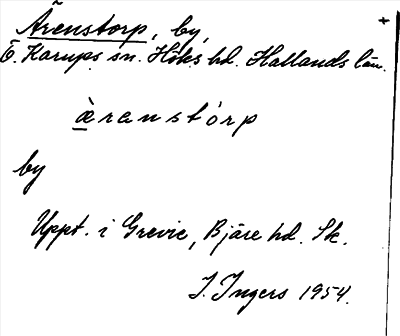 Ärenstorp, by,
Ö. Karups sn. Höks hd. Hallands län.
æ̀renstórp
by
Uppt. i Grevie, Bjäre hd. Sk.
I. Ingers 1954.